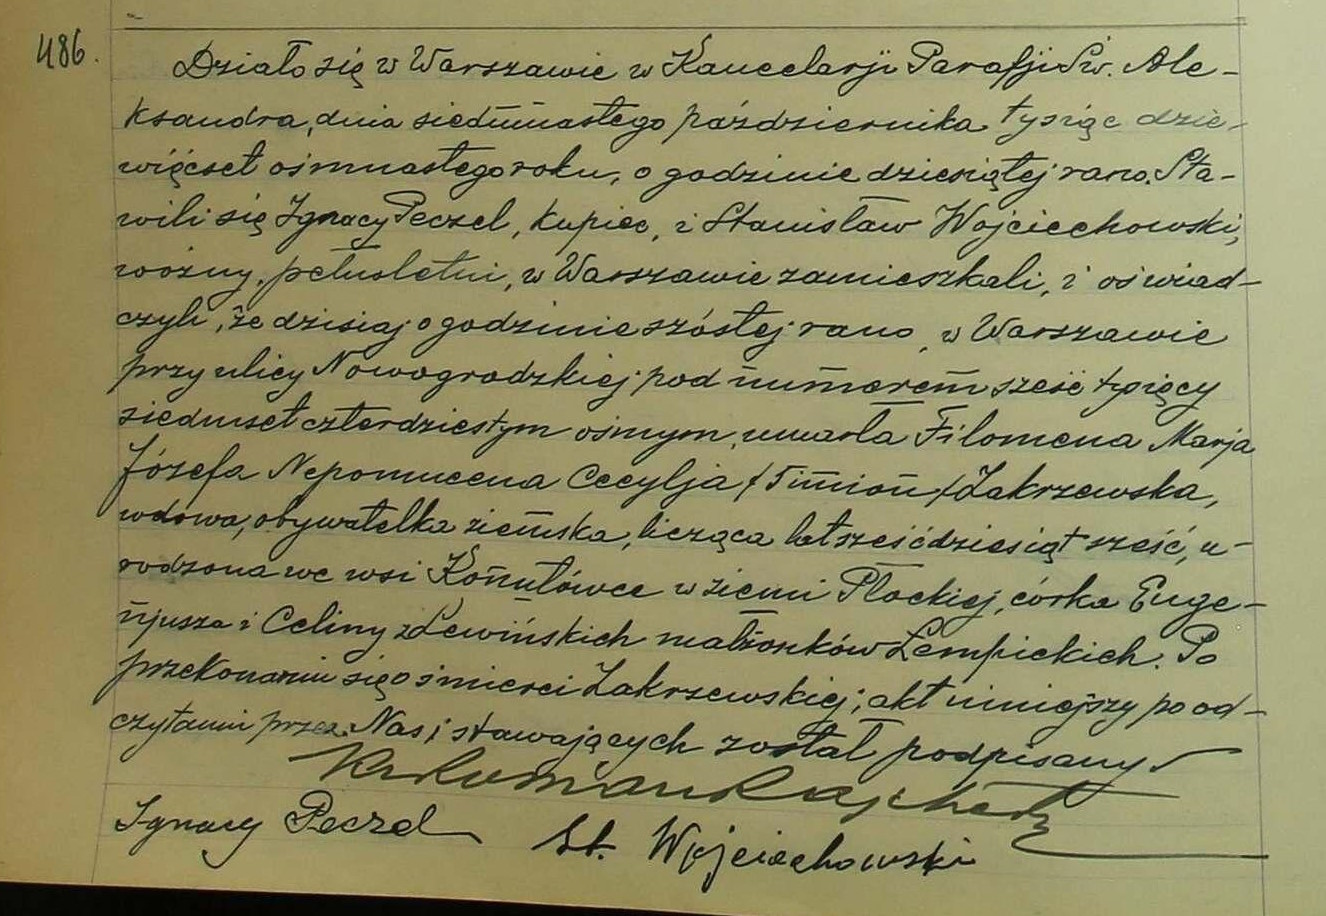 486.
Działo się w Warszawie w Kancelarji Parafji Św. Ale-
ksandra, dnia siedmnastego października tysiąc dzie-
więćset ośmnastego roku, o godzinie dziesiątej rano. Sta-
wili się Ignacy Peczel, kupiec, i Stanisław Wojciechowski,
woźny, pełnoletni, w Warszawie zamieszkali, i oświad-
czyli, że dzisiaj o godzinie szóstej rano, w Warszawie
przy ulicy Nowogrodzkiej pod numerem sześć tysięcy
siedmset czterdziestym ósmym, umarła Filomena Marja
Józefa Nepomucena Cecylja /5 imion/ Zakrzewska,
wdowa, obywatelka ziemska, licząca lat sześćdziesiąt sześć, u-
rodzona we wsi w ziemi Płockiej, córka Euge-
njusza i Celiny z Lewińskich małżonków Lempickich. Po
przekonaniu się o śmierci Zakrzewskiej, akt niniejszy po od-
czytaniu przez Nas i stawających został podpisany
Ks. Roman
Ignacy Peczel St. Wojciechowski